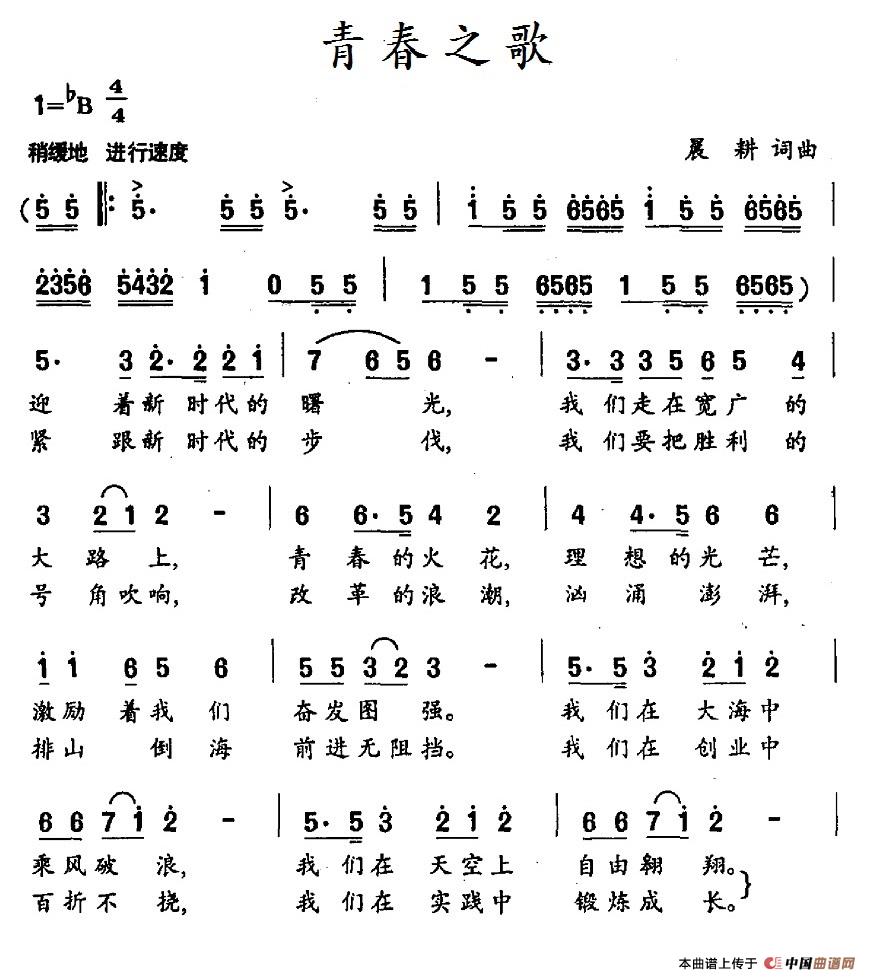 青春之歌
1=♭B 4/4
稍缓地 进行速度
晨 耕 词曲
(5 5 ‖: 5· 5 5 5· 5 5 | 1 5 5 6565 1 5 5 6565 |
2356 5432 1 0 5 5 | 1 5 5 6565 1 5 5 6565) |
5· 3 2· 2 2 1 | 7 6 5 6 - | 3· 3 3 5 6 5 4 |
迎 着新 时代的 曙 光, 我 们走在宽广的
紧 跟新 时代的 步 伐, 我 们要把胜利的
3 2 1 2 - | 6 6· 5 4 2 | 4 4· 5 6 6 |
大 路上, 青 春的火花, 理 想的光芒,
号 角吹响, 改 革的浪潮, 汹 涌澎湃,
1 1 6 5 6 | 5 5 3 2 3 - | 5· 5 3 2 1 2 |
激励 着我们 奋发图 强。 我们在 大海中
排山 倒海 前进无阻挡。 我们在 创业中
6 6 7 1 2 - | 5· 5 3 2 1 2 | 6 6 7 1 2 - |
乘风破浪, 我们在天空上 自由翱翔。
百折不挠, 我们在实践中 锻炼成长。}
本曲谱上传于 中国曲谱网